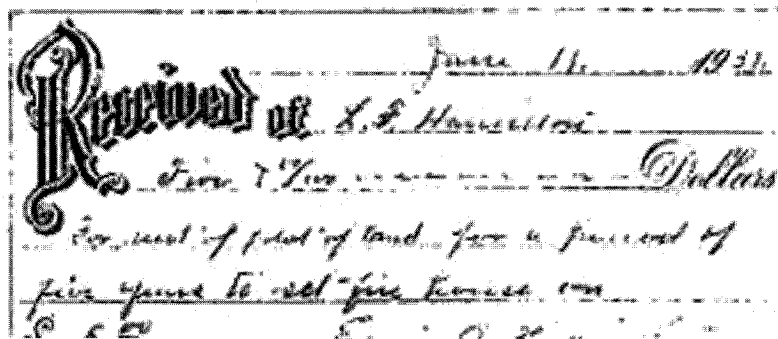 June 11, 193
Received of L. F.
Five & 00/100 Dollars
For rent of plot of land for a period of
five years to set fire house on